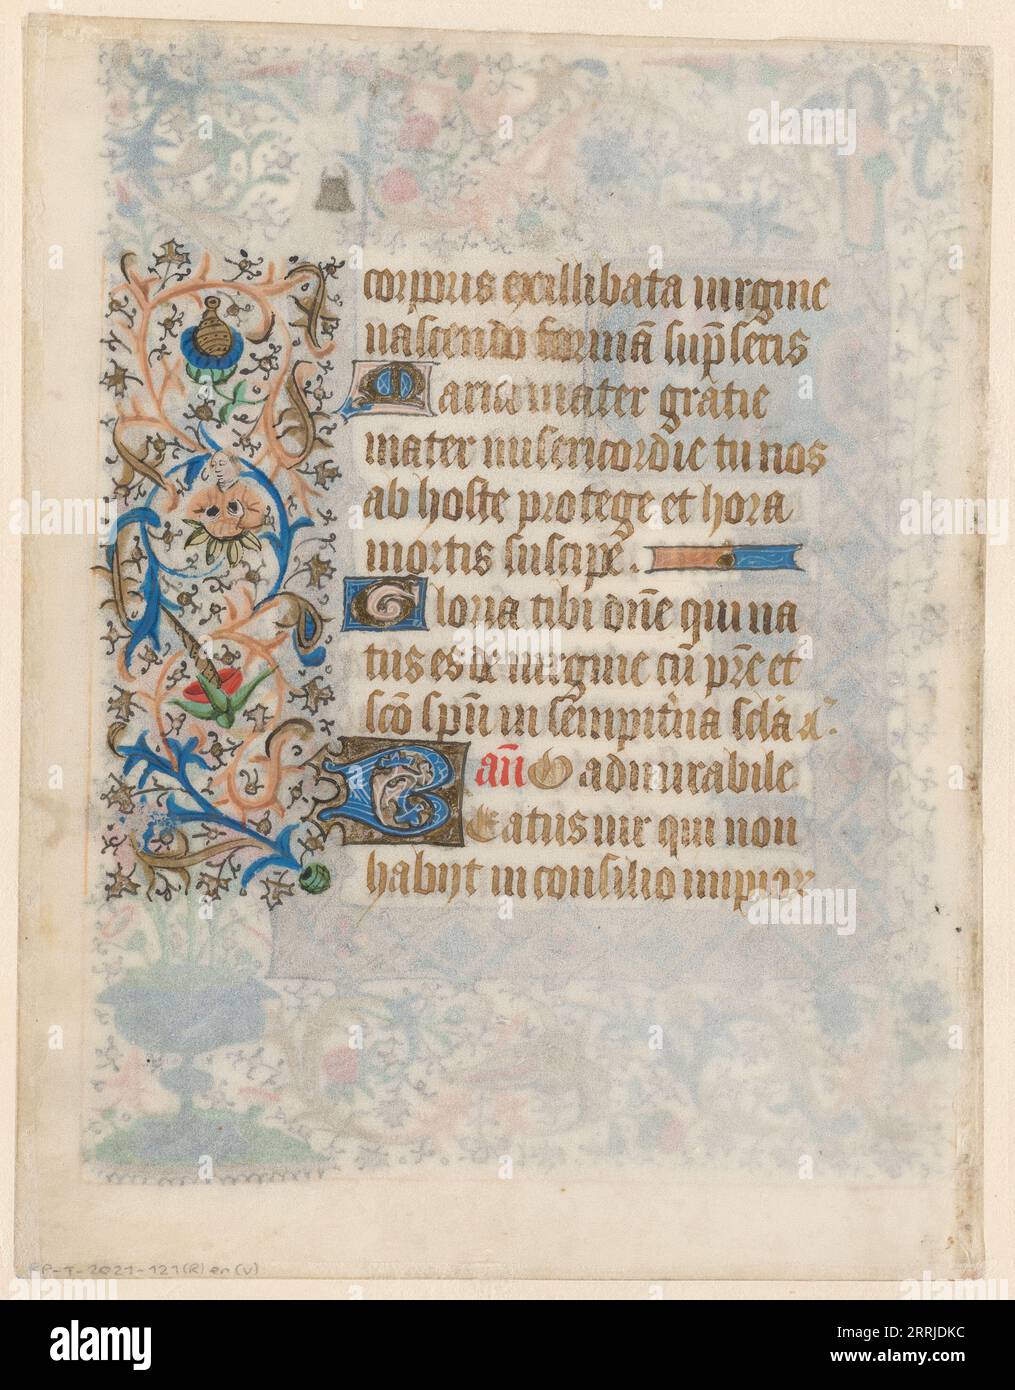 corporis ex illibata virgine
nascendo formā sūpseris
Maria mater gratie
mater misericordie tu nos
ab hoste protege et hora
mortis suscipe.
Gloria tibi dn̄e qui na
tus es de virgine cū pr̄e et
scō spū in sempit'na sc̄la a.
an̄ O admirabile
Beatus vir qui non
habijt in consilio impior
PP-T-2021-121(R) en (V)
alamy
Image ID: 2RRJDKC
www.alamy.com